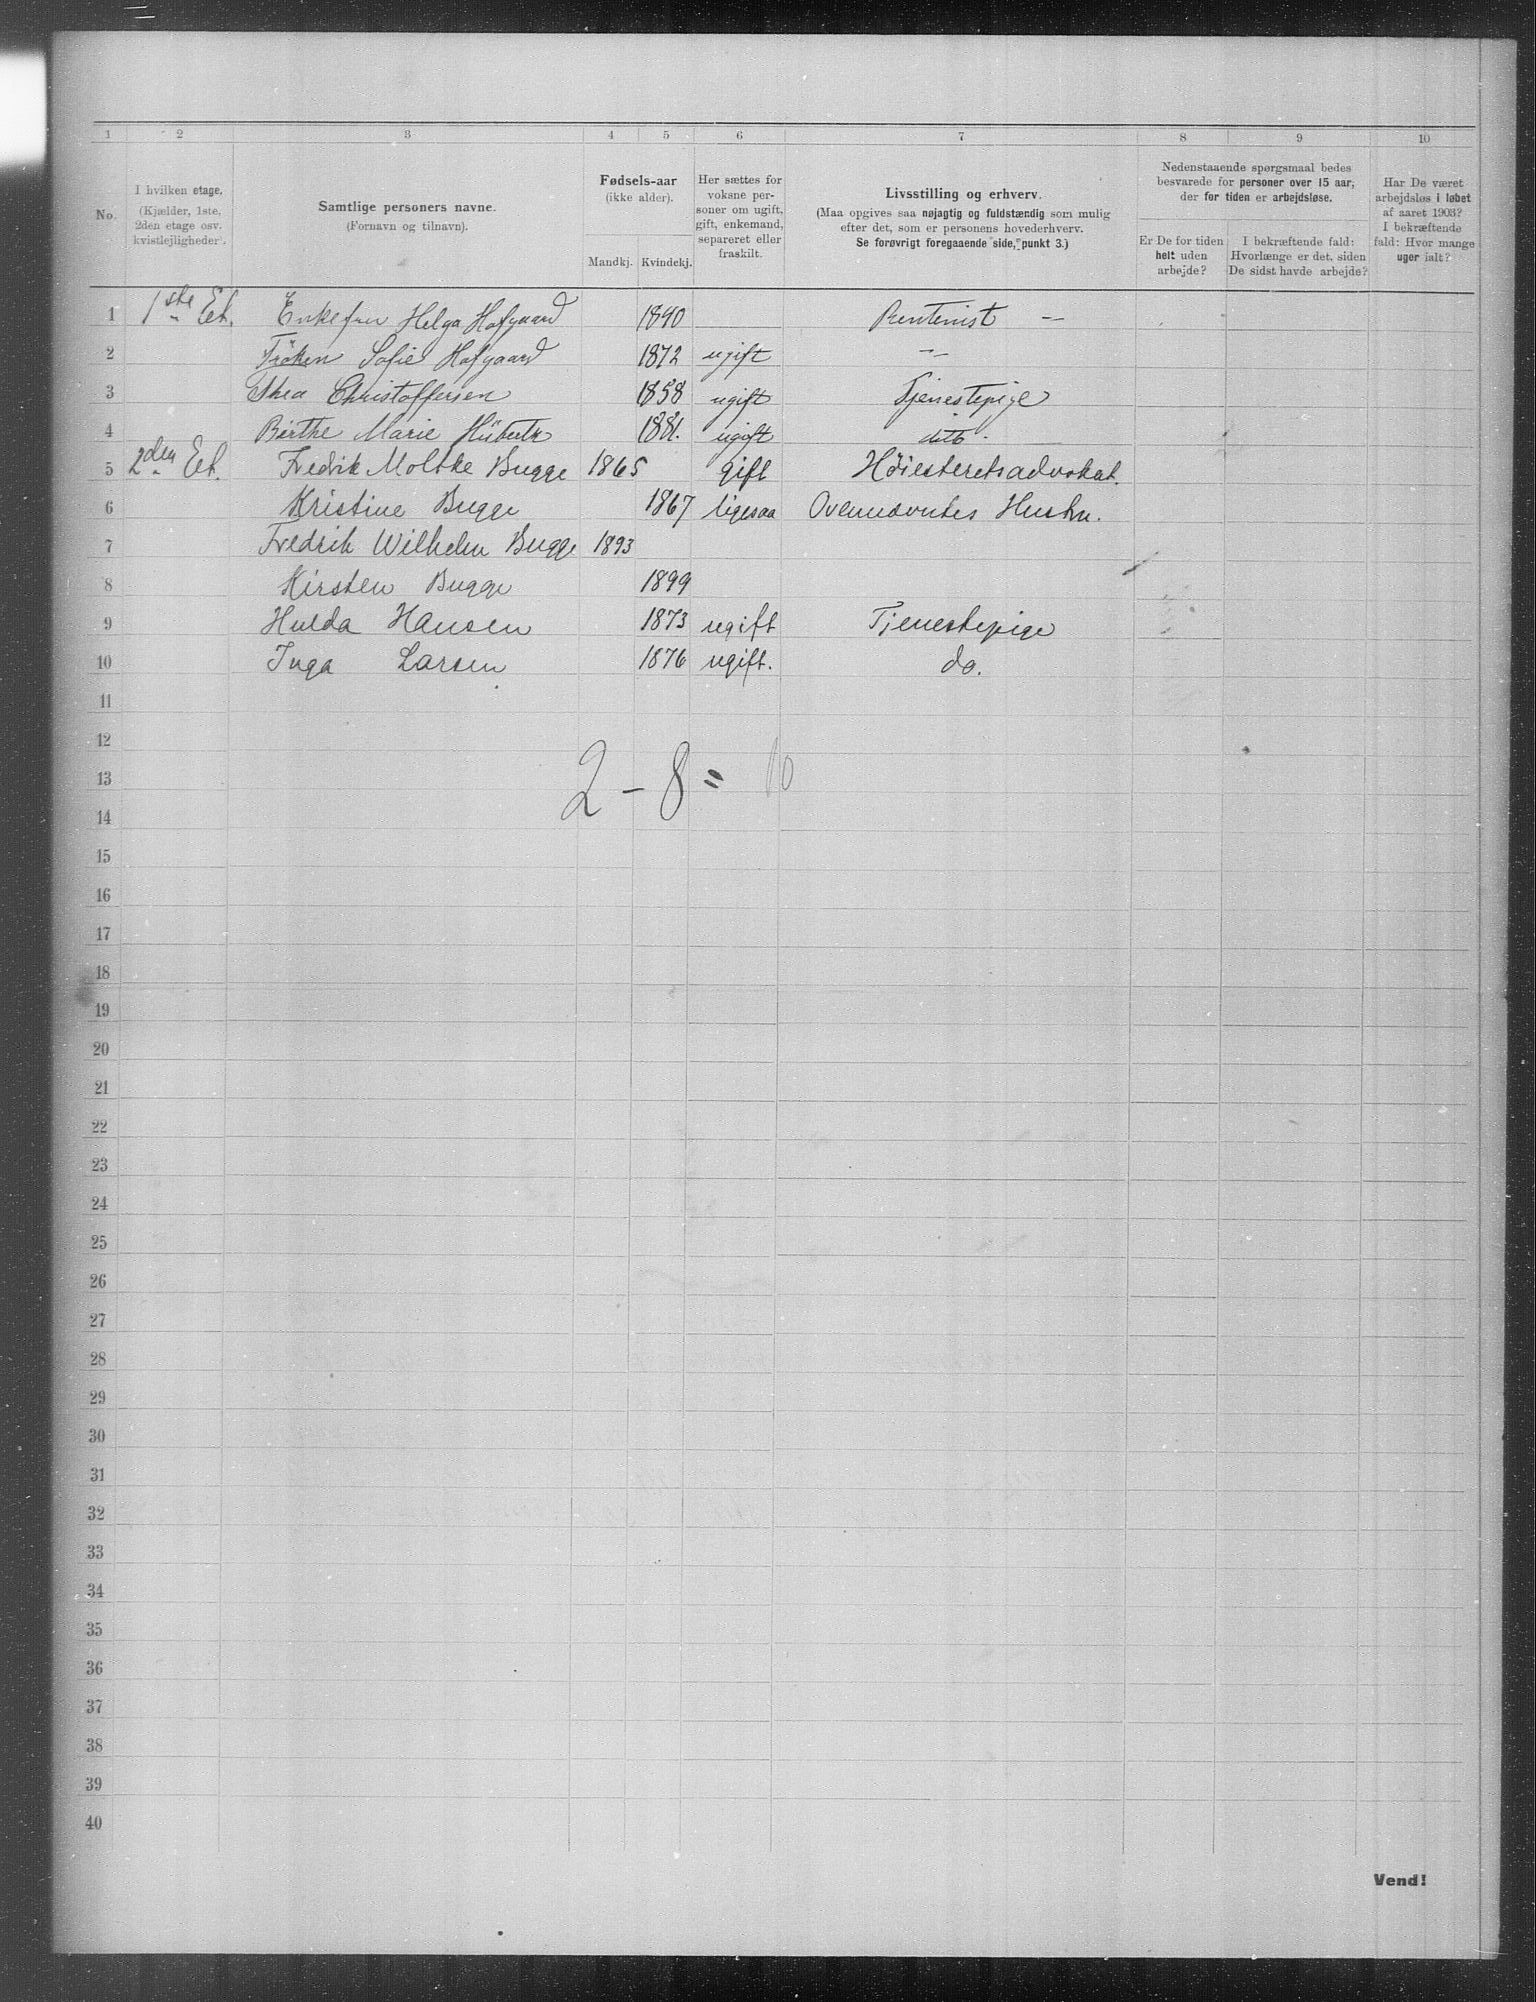 1 2 3 4 5 6 7 8 9 10
No.
I hvilken etage.
(Kjælder, 1ste,
2den etage osv.
kvistlejligheder).
Samtlige personers navne.
(Fornavn og tilnavn).
Fødsels-aar
(ikke alder).
Mandkj. Kvindekj.
Her sættes for
voksne per-
soner om ugift,
gift, enkemand,
separeret eller
fraskilt.
Livsstilling og erhverv.
(Maa opgives saa nøjagtig og fuldstændig som mulig
efter det, som er personens hovederhverv.
Se forøvrigt foregaaende side, punkt 3.)
Nedenstaaende spørgsmaal bedes
besvarede for personer over 15 aar,
der for tiden er arbejdsløse.
Er De for tiden
helt uden
arbejde?
I bekræftende fald:
Hvorlænge er det, siden
De sidst havde arbejde?
Har De været
arbejdsløs i løbet
af aaret 1903?
I bekræftende
fald: Hvor mange
uger ialt?
1 1ste Et. Enkefru Helga Hofgaard 1840 Rentenist —
2 Frøken Sofie Hofgaard 1872 ugift —"—
3 Thea Christoffersen 1858 ugift Tjenestepige
4 Birthe Marie 1881. ugift ditto.
5 2den Et. Fredrik Moltke Bugge 1865 gift Høiesteretsadvokat.
6 Kristine Bugge 1867 ligesaa Ovennævntes Hustru.
7 Fredrik Wilhelm Bugge 1893
8 Kirsten Bugge 1899
9 Hulda Hansen 1873 ugift Tjenestepige
10 Inga Larsen 1876 ugift. do.
11
12
13 2 – 8 = 10
14
15
16
17
18
19
20
21
22
23
24
25
26
27
28
29
30
31
32
33
34
35
36
37
38
39
40
Vend!